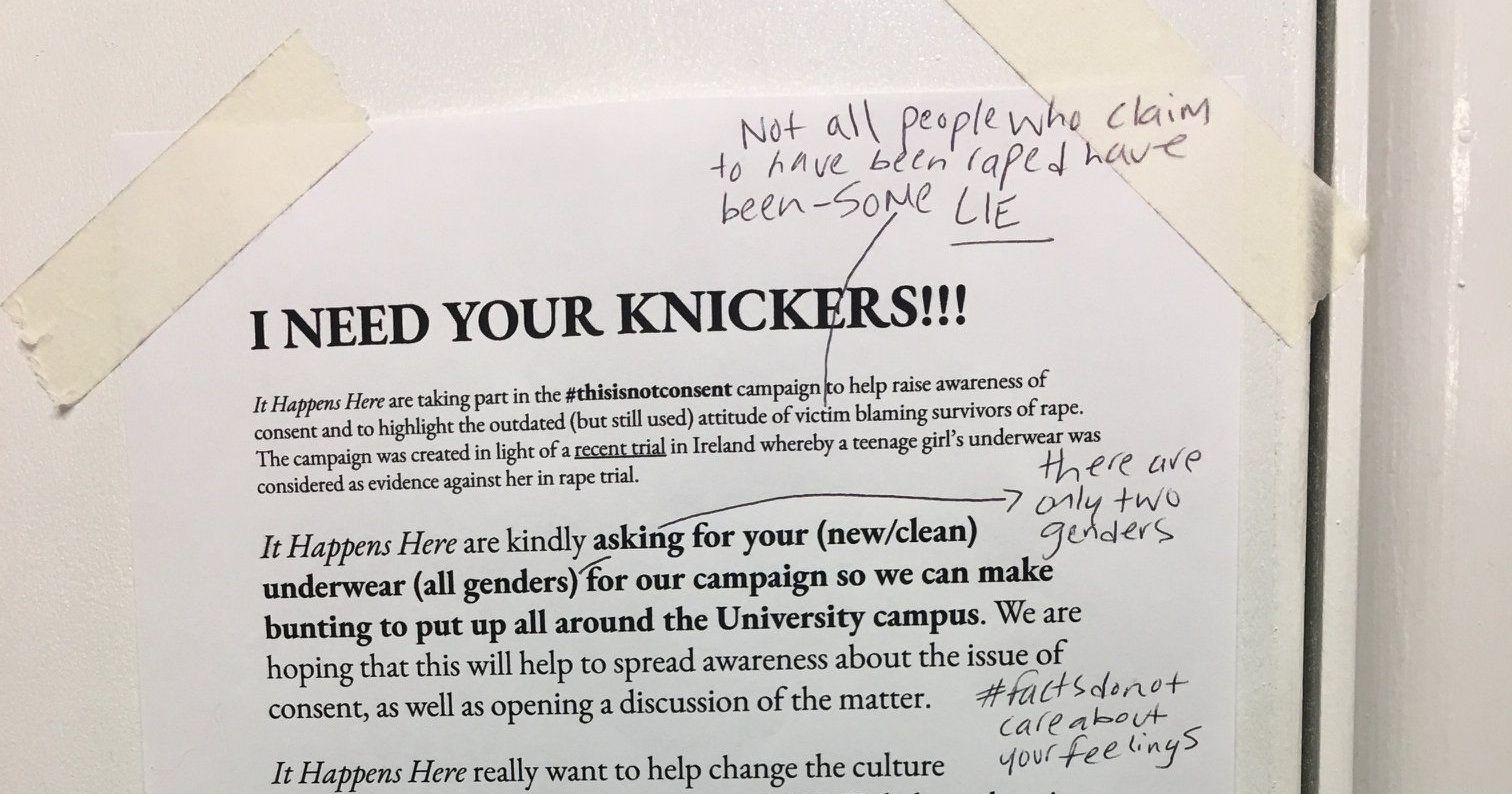 Not all people who claim
to have been raped have
been-SOME LIE
I NEED YOUR KNICKERS!!!
It Happens Here are taking part in the #thisisnotconsent campaign to help raise awareness of
consent and to highlight the outdated (but still used) attitude of victim blaming survivors of rape.
The campaign was created in light of a recent trial in Ireland whereby a teenage girl's underwear was
considered as evidence against her in rape trial.
there are
only two
genders
It Happens Here are kindly asking for your (new/clean)
underwear (all genders) for our campaign so we can make
bunting to put up all around the University campus. We are
hoping that this will help to spread awareness about the issue of
consent, as well as opening a discussion of the matter.
#factsdonot
careabout
yourfeelings
It Happens Here really want to help change the culture